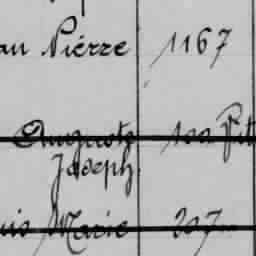 an Pierre 1167
Auguste
Joseph
uis Marie 207